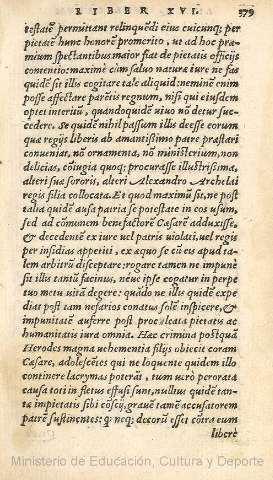 LIBER XVI. 379
testatẽ permittant relinquẽdi eius cuicunq; per
pietatẽ hunc honorẽ promerito, ut ad hoc præ-
mium spectantibus maior fiat de pietatis officijs
contentio: maximè cũm saluo natura iure ne fas
quidẽ sit illis cogitare tale aliquid: neminẽ enim
posse affectare parẽtis regnum, nisi qui eiusdem
optet interitũ, quandoquidẽ uiuo nõ detur suc-
cedere. Se quidẽ nihil passum illis deesse eorum
quæ regijs liberis ab amantissimo patre præstari
conueniat, nõ ornamenta, nõ ministerium, non
delicias, cõiugia quoq; procurasse illustrissima,
alteri suæ sororis, alteri Alexandro Archelai
regis filia collocata. Et quod maximũ sit, ne post
talia quidẽ ausa patria se potestate in eos usum,
sed ad cõmunem benefactorẽ Cæsarẽ adduxisse,
& decedentẽ ex iure uel patris uiolati, uel regis
per insidias appetiti, ex æquo se cũ eis apud ta-
lem arbitrũ disceptare: rogare tamen ne impunè
sit illis tantũ facinus, néue ipse cogatur in perpe
tuo metu uitã degere: quãdo ne illis quidẽ expe-
diat post tam nefarios conatus solẽ inspicere, &
impunitatẽ auferre post proculcata pietatis ac
humanitatis iura omnia. Hæc crimina postquã
Herodes magna uehementia filijs obiecit coram
Cæsare, adolescẽtes qui ne loquente quidem illo
continere lacrymas poterãt, tum uerò perorata
causa toti in fletus effusi sunt, nullius quidẽ tan-
tæ impietatis sibi cõscij, grauẽ tamẽ accusatorem
patrẽ sustinentes: q neq; decorũ esset cum eo tum
liberè
Ministerio de Educación, Cultura y Deporte